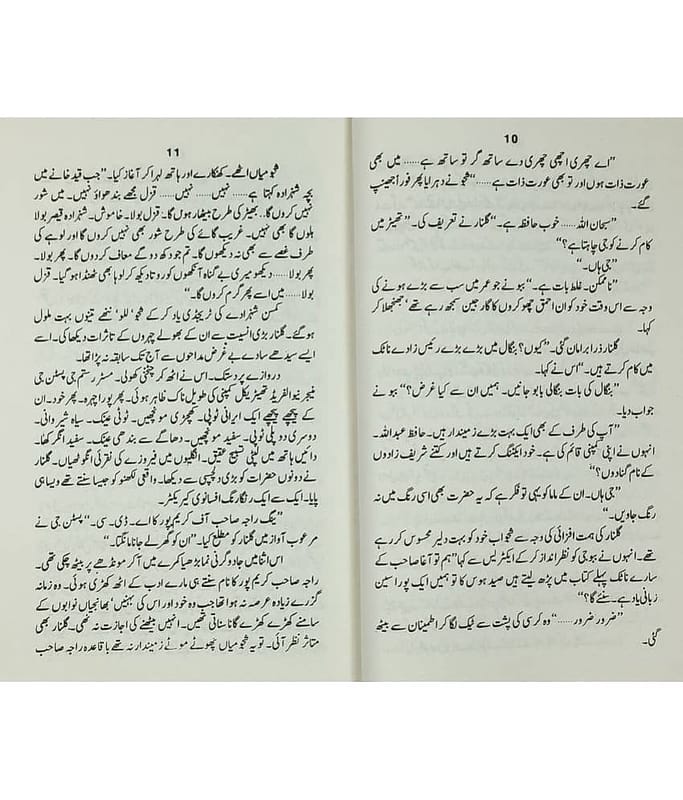 10
”اے چھری اچھی چھری دے ساتھ گر تو ساتھ ہے...... میں بھی
عورت ذات ہوں اور تو بھی عورت ذات ہے......“ شجو نے دہرایا پھر فوراً جھینپ
گئے۔
”سبحان اللہ...... خوب حافظہ ہے۔“ گلنار نے تعریف کی۔ ”تھیٹر میں
کام کرنے کو جی چاہتا ہے؟“
”جی ہاں۔“
”ناممکن۔ غلط بات ہے۔“ ببو نے جو عمر میں سب سے بڑے ہونے کی
وجہ سے اس وقت خود کو ان احمق چھوکروں کا گارجین سمجھ رہے تھے‘ جھنجھلا کر
کہا۔
گلنار ذرا برا مان گئی۔ ”کیوں؟ بنگال میں بڑے بڑے رئیس زادے ناٹک
میں کام کرتے ہیں۔“ اس نے کہا۔
”بنگال کی بات بنگالی بابو جانیں۔ ہمیں ان سے کیا غرض؟“ ببو نے
جواب دیا۔
”آپ کی طرف کے بھی ایک بہت بڑے زمیندار ہیں۔ حافظ عبداللہ۔
انہوں نے اپنی کمپنی قائم کی ہے۔ خود ایکٹنگ کرتے ہیں اور کتنے شریف زادوں
کے نام گنادوں؟“
”جی ہاں۔ ان کے ماما کو یہی تو فکر ہے کہ یہ حضرت بھی اسی رنگ میں نہ
رنگ جاویں۔“
گلنار کی ہمت افزائی کی وجہ سے شجو اب خود کو بہت دلیر محسوس کر رہے
تھے۔ انہوں نے ببو جی کو نظر انداز کر کے ایکٹریس سے کہا ”ہم تو آغا صاحب کے
سارے ناٹک پہلے کتاب میں پڑھ لیتے ہیں صید ہوس کا تو ہمیں ایک پورا سین
زبانی یاد ہے۔ سنئے گا؟“
”ضرور ضرور......“ وہ کرسی کی پشت سے ٹیک لگا کر اطمینان سے بیٹھ
گئی۔
11
شجو میاں اٹھے۔ کھنکارے اور ہاتھ لہرا کر آغاز کیا۔ ”جب قید خانے میں
بچہ شہزادہ کہتا ہے...... نہیں...... نہیں...... قزل مجھے بندھواؤ نہیں۔ میں شور
نہیں کروں گا.. بھیڑ کی طرح بیٹھا رہوں گا۔ قزل بولا۔ خاموش۔ شہزادہ قیصر بولا
ہلوں گا بھی نہیں۔ غریب گائے کی طرح شور بھی نہیں کروں گا اور لوہے کی
طرف غصے سے بھی نہ دیکھوں گا۔ تم جو دکھ دو گے معاف کروں گا۔ پھر بولا۔
پھر بولا...... دیکھو میری بے گناہ آنکھوں کو روتا دیکھ کر لوہا بھی ٹھنڈا ہو گیا۔ قزل
بولا...... میں اسے پھر گرم کروں گا۔“
کمسن شہزادے کی ٹریجڈی یاد کر کے شجو‘ للو‘ ننھے تینوں بہت ملول
ہو گئے۔ گلنار بڑی انسیت سے ان کے بھولے چہروں کے تاثرات دیکھا کی۔ اسے
ایسے سیدھے سادے بے غرض مداحوں سے آج تک سابقہ نہ پڑا تھا۔
دروازے پر دستک۔ اس نے اٹھ کر چٹخنی کھولی۔ مسٹر رستم جی پسٹن جی
منیجر نیو الفریڈ تھیٹریکل کمپنی کی طویل ناک ظاہر ہوئی۔ پھر پورا چہرہ۔ پھر خود۔ ان
کے پیچھے پیچھے ایک ایرانی ٹوپی۔ کھچڑی مونچھیں۔ ٹوٹی عینک۔ سیاہ شیروانی۔
دوسری دو پلی ٹوپی۔ سفید مونچھیں۔ دھاگے سے بندھی عینک۔ سفید انگر کھا۔
دائیں ہاتھ میں لپٹی تسبیح عقیق۔ انگلیوں میں فیروزے کی نقرئی انگوٹھیاں۔ گلنار
نے دونوں حضرات کو بڑی دلچسپی سے دیکھا۔ واقعی لکھنؤ کو جیسا سنتے تھے ویسا ہی
پایا۔ ایک سے ایک رنگا رنگ افسانوی کیریکٹر۔
”ینگ راجہ صاحب آف کریم پور کا اے۔ ڈی۔ سی۔“ پسٹن جی نے
مرعوب آواز میں گلنار کو مطلع کیا۔ ”ان کو گھر لے جانا مانگتا۔“
اس اثنا میں جادو گرنی نما بڑھیا کمرے میں آ کر مونڈھے پر بیٹھ چکی تھی۔
راجہ صاحب کریم پور کا نام سنتے ہی مارے ادب کے اٹھ کھڑی ہوئی۔ وہ زمانہ
گزرے زیادہ عرصہ نہ ہوا تھا جب وہ خود اور اس کی بہنیں‘ بھانجیاں نوابوں کے
سامنے کھڑے کھڑے گانا سناتی تھیں۔ انہیں بیٹھنے کی اجازت نہ تھی۔ گلنار بھی
متاثر نظر آئی۔ تو یہ شجو میاں چھوٹے موٹے زمیندار نہ تھے باقاعدہ راجہ صاحب